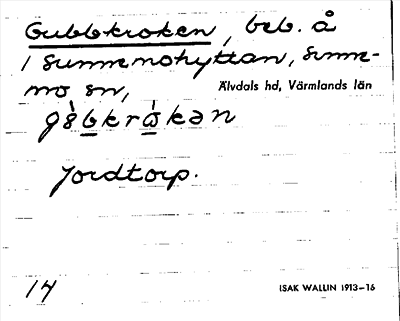 Gubbkroken, beb. å
1 Summmohyttan, Summ-
mo sn, Älvdals hd, Värmlands län
Jordtorp.
14
ISAK WALLIN 1913–16